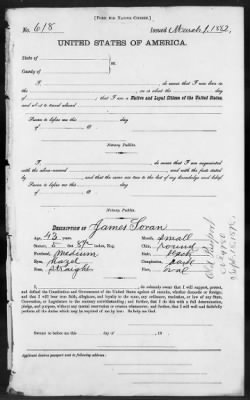 [FORM FOR NATIVE CITIZEN.]
No. 618 Issued March 1, 1882,
UNITED STATES OF AMERICA.
State of
County of
ss.
I, do swear that I was born in
, on or about the day of
, that I am a Native and Legal Citizen of the United States,
and about to travel abroad
Sworn to before me this
day of
Notary Public.
I, do swear that I am acquainted
with the above-named and with the facts stated
by and that the same are true to the best of my knowledge and belief.
Sworn to before me this
day of
Notary Public.
DESCRIPTION OF James Soran
Age, 43 years. Mouth, small
Stature, 5 feet 8½ inches, Eng. Chin, round
Forehead, medium Hair, black
Eyes, hazel Complexion, dark
Nose, straight Face, oval
I, do solemnly swear that I will support, protect,
and defend the Constitution and Government of the United States against all enemies, whether domestic or foreign,
and that I will bear true faith, allegiance, and loyalty to the same, any ordinance, resolution, or law of any State,
Convention, or Legislature to the contrary notwithstanding; and further, that I do this with a full determination,
pledge, and purpose, without any mental reservation or evasion whatsoever; and further, that I will well and faithfully
perform all the duties which may be required of me by law: So help me God.
Sworn to before me this day of , 18
Applicant desires passport sent to following address:
Old Passport